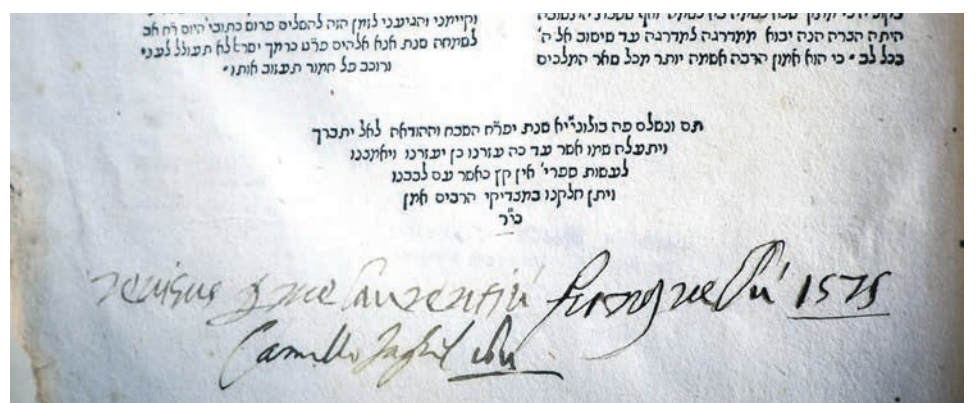 היתה הכרה הנה יבוא ממדרגה למדרגה עד שישוב אל ה'
בכל לב • כי הוא אמון הרבה אשמה יותר מכל שאר המלכים
וקיימני והגיעני לזמן הזה להשלים פרוש כתובי' היום ר"ח אב
לשמחה שנת אנא אלהים פר"ט כרמך ישראל לא תעולל לעני
ורוכב על חמור תעזוב אותו •
תם ונשלם פה בולוני"יא שנת יפר"ח השבח וההודאה לאל יתברך
ויתעלה שמו אשר עד כה עזרנו כן יעזרנו ויאמצנו
לעשות ספרי' אין קץ כאשר עם לבבנו
ויתן חלקנו במצדיקי הרבים אמן
כי"ר
revisus p me laurentiu franguellu 1575
Camillo Jaghel 1611